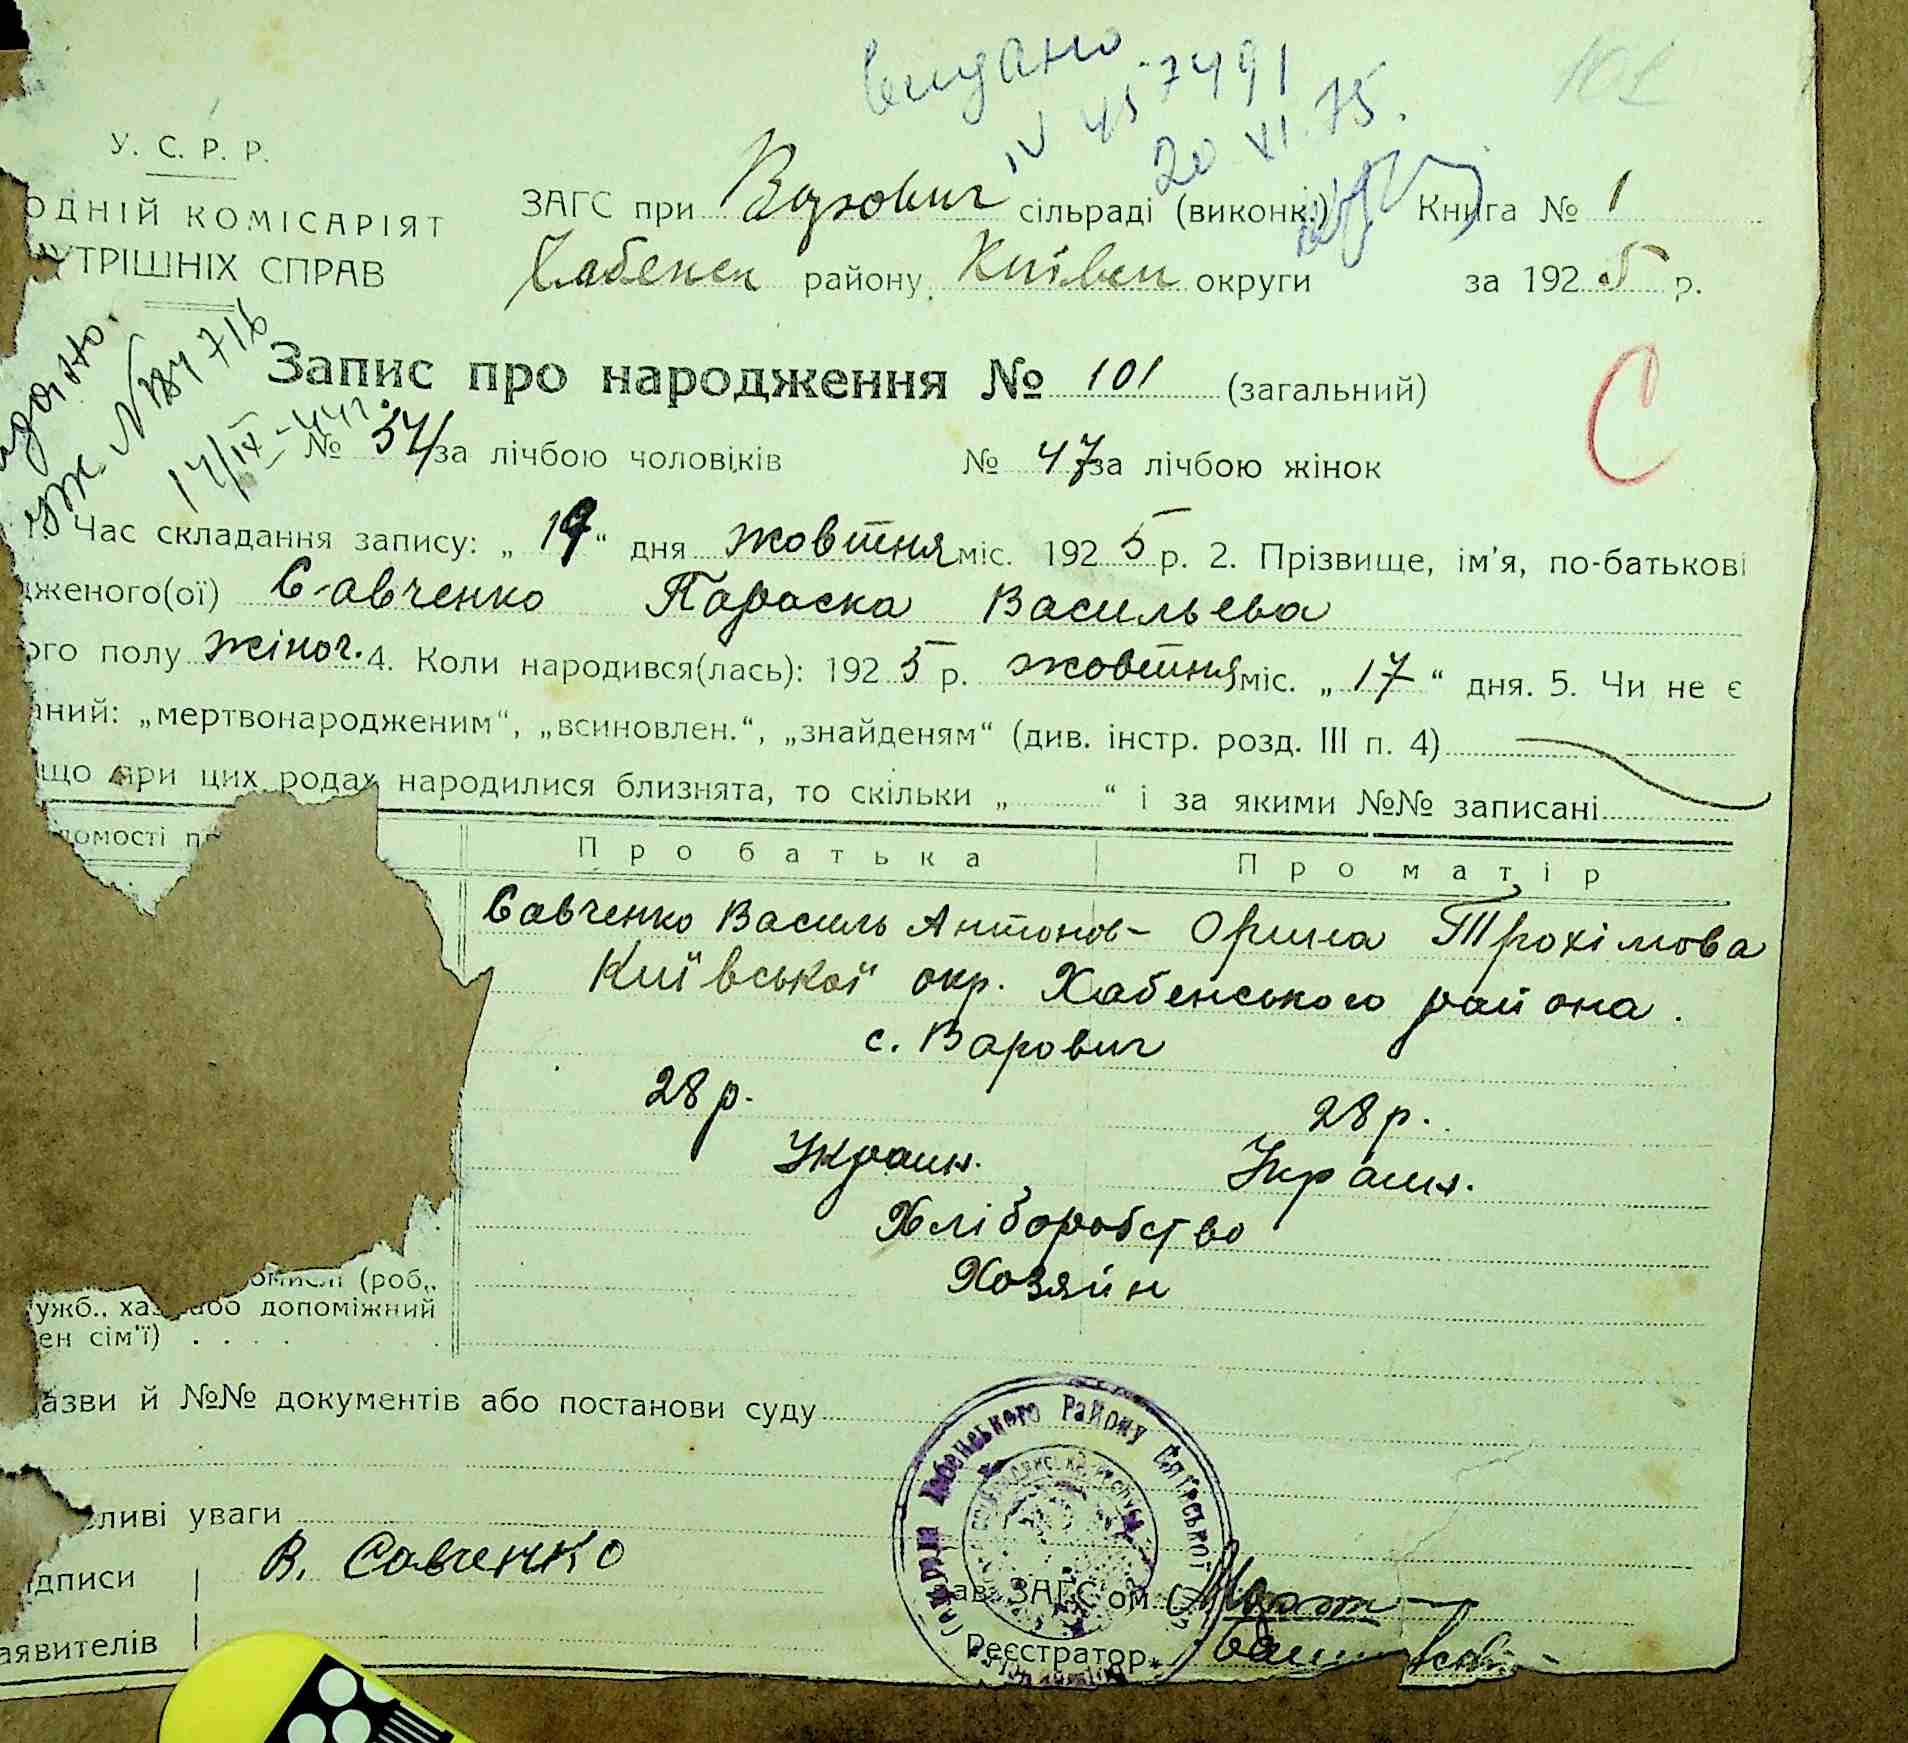 видано
IV 45 7491
20 VI. 75.
101
У. С. Р. Р.
ОДНІЙ КОМІСАРІЯТ
УТРІШНІХ СПРАВ
ЗАГС при Варович сільраді (виконк.) Книга № 1
Хабенск району, Київськ округи за 1925 р.
Запис про народження № 101 (загальний)
№ 54 за лічбою чоловіків № 47 за лічбою жінок
С
Час складання запису: „19“ дня жовтня міс. 1925 р. 2. Прізвище, ім’я, по-батькові
дженого(ої) Савченко Параска Васильева
ого полу жіноч. 4. Коли народився(лась): 1925 р. жовтня міс. „17“ дня. 5. Чи не є
аний: „мертвонародженим“, „всиновлен.“, „знайденям“ (див. інстр. розд. III п. 4)
що при цих родах народилися близнята, то скільки „ “ і за якими №№ записані
домості пр Про батька Про матір
Савченко Василь Антонов- Орина Трохімова
Київської окр. Хабенського района.
с. Варович
28 р. 28 р.
Украин. Украин.
Хліборобство
Хозяйн
омислі (роб.,
ужб., хаз. або допоміжний
ен сім’ї)
азви й №№ документів або постанови суду
ливі уваги
ідписи В. Савченко
ав. ЗАГС’ом
аявителів Реєстратор